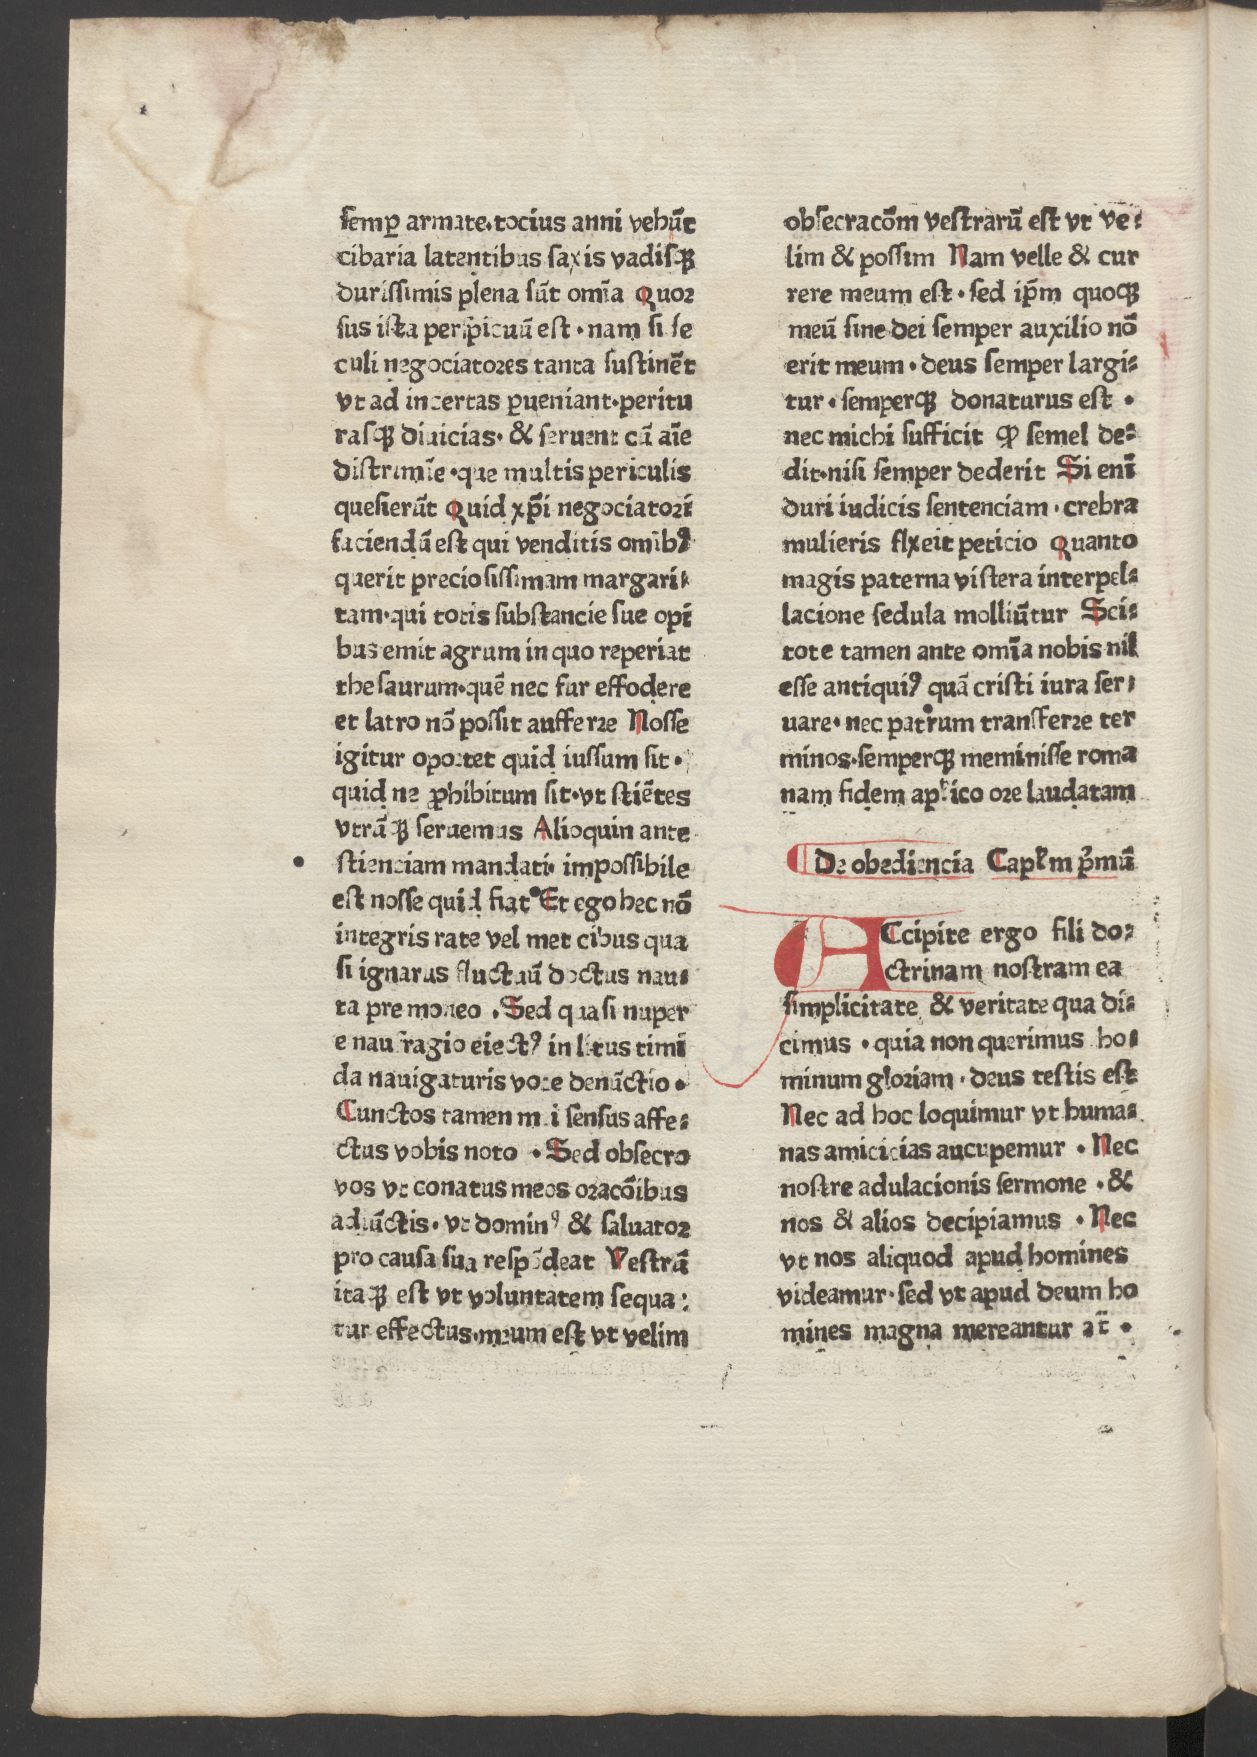 semꝑ armate·tocius anni vehūt
cibaria latentibus saxis vadisqꝫ
durissimis plena sūt omīa Quor
sus ista perspicuū est · nam si se
culi negociatores tanta sustinēt
vt ad incertas ꝑueniant·peritu
rasqꝫ diuicias· & seruent cū aīe
discrimīe ·que multis periculis
quesierūt Quid xp̄i negociatorī
faciendū est qui venditis omībꝰ
querit preciosissimam margari-
tam·qui totis substancie sue opī
bus emit agrum in quo reperiat
thesaurum·quē nec fur effodere
et latro nō possit aufferre Nosse
igitur oportet quid iussum sit·
quid ne ꝓhibitum sit·vt sciētes
vtrūqꝫ seruemus Alioquin ante
scienciam mandati· impossibile
est nosse quid fiat·Et ego hec nō
integris rate vel mercibus qua
si ignarus fluctuū doctus nau-
ta premoneo ·Sed quasi nuper
e naufragio eiectꝰ in litus timi
da nauigaturis voce denūctio·
Cunctos tamen mei sensus affe-
ctus vobis noto ·Sed obsecro
vos vt conatus meos oracōibus
adiūctis· vt dominꝰ & saluator
pro causa sua respōdeat Vestrā
itaqꝫ est vt voluntatem sequa:
tur effectus·meum est vt velim
obsecracōm vestrarū est vt ve-
lim & possim Nam velle & cur
rere meum est·sed ip̄m quoqꝫ
meū sine dei semper auxilio nō
erit meum·deus semper largi-
tur·semperqꝫ donaturus est ·
nec michi sufficit ꝙ semel de-
dit·nisi semper dederit Si enī
duri iudicis sentenciam·crebra
mulieris flxeit peticio Quanto
magis paterna viscera interpel-
lacione sedula molliūtur Sci-
tote tamen ante omīa nobis nil
esse antiquiꝰ quā cristi iura ser-
uare·nec patrum transferre ter
minos·semperqꝫ meminisse roma
nam fidem aplico ore laudatam
De obediencia Caplm pᷓmū
ACcipite ergo fili do-
ctrinam nostram ea
simplicitate & veritate qua di-
cimus ·quia non querimus ho-
minum gloriam·deus testis est
Nec ad hoc loquimur vt huma-
nas amicicias aucupemur ·Nec
nostre adulacionis sermone ·&
nos & alios decipiamus ·Nec
vt nos aliquod apud homines
videamur·sed vt apud deum ho
mines magna mereantur at̄ ·